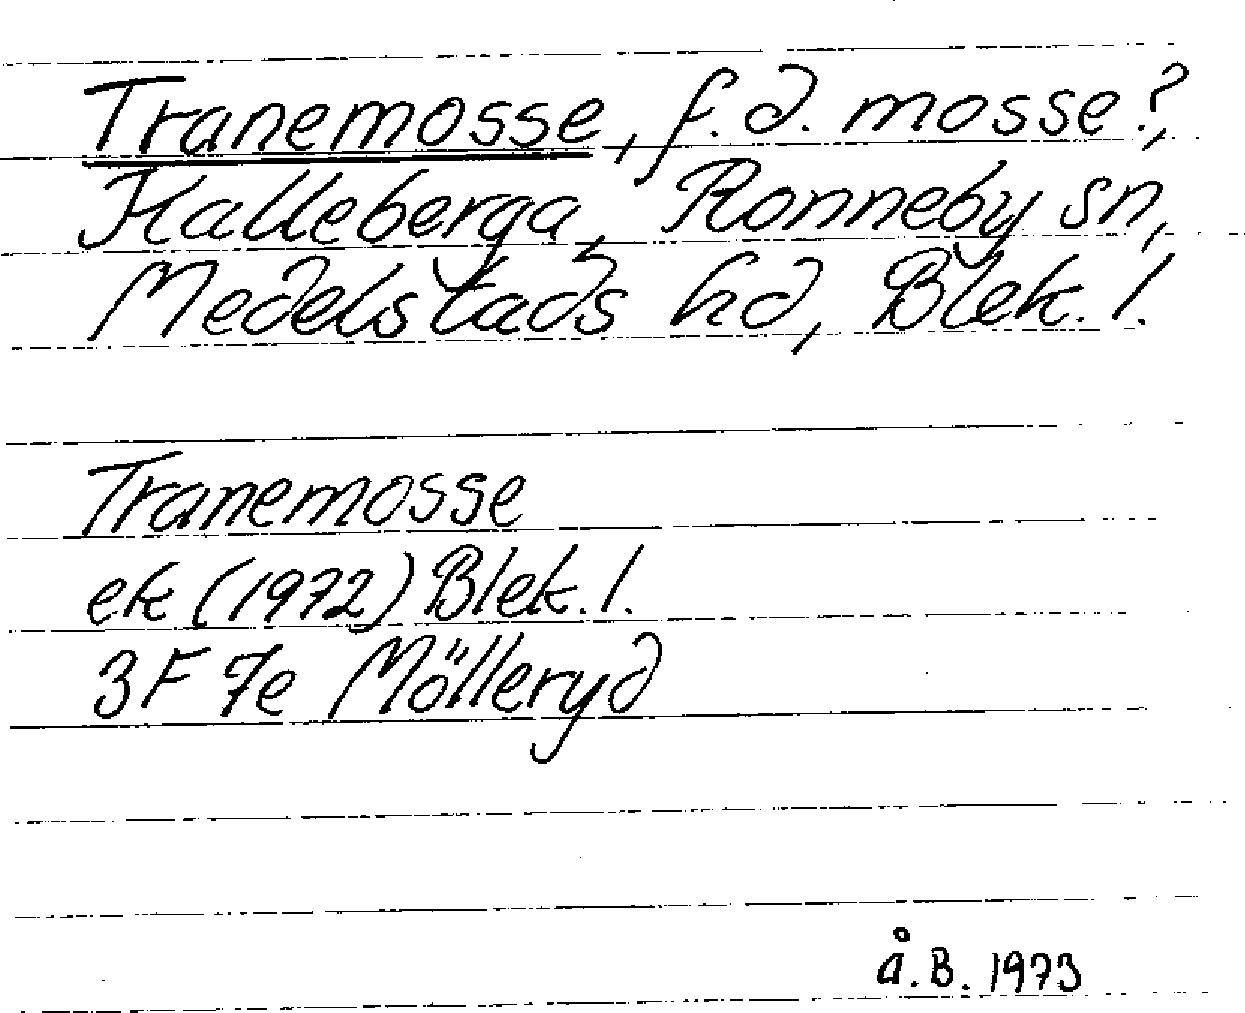 Tranemosse, f.d. mosse?,
Halleberga, Ronneby sn,
Medelstads hd, Blek. l.
Tranemosse
ek (1972) Blek. l.
3F 7e Mölleryd
å.B. 1973